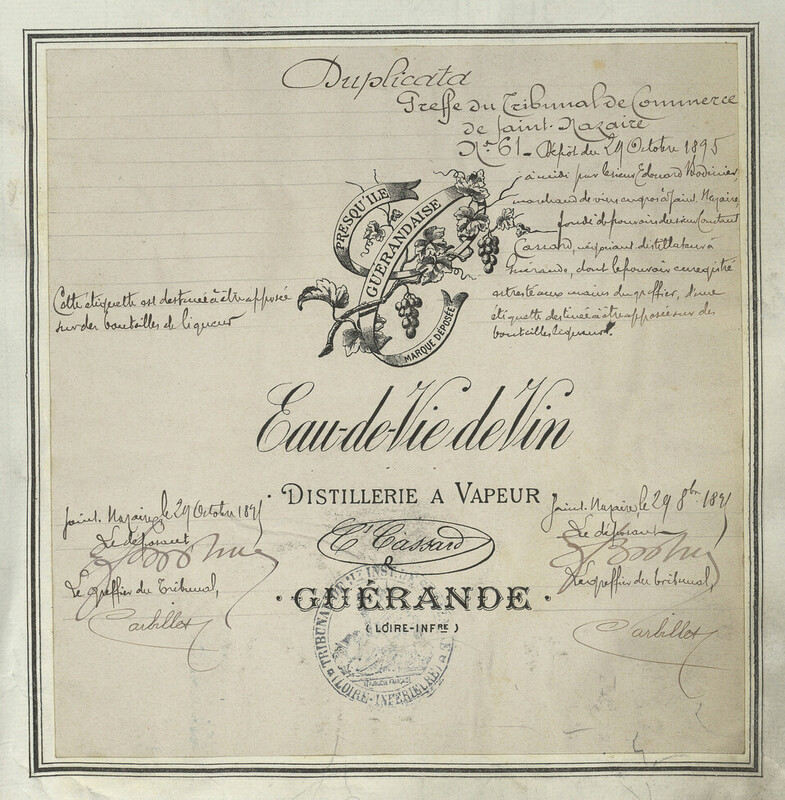 Duplicata
Greffe du Tribunal de Commerce
de Saint-Nazaire
No 61 - Dépôt du 29 Octobre 1895
à midi par le sieur Edouard Bodinier,
marchand de vins en gros à Saint-Nazaire
fondé de pouvoir du sieur Constant
Cassard, négociant distillateur à
Guérande, dont le pouvoir enregistré
est resté aux mains du greffier, d'une
étiquette destinée à être apposée sur des
bouteilles liqueur.
PRESQU'ILE
GUÉRANDAISE
MARQUE DÉPOSÉE
Cette étiquette est destinée à être apposée
sur des bouteilles de liqueur
Eau-de-Vie de Vin
· DISTILLERIE A VAPEUR
Ct Cassard
&
· GUÉRANDE ·
(LOIRE-INFRE)
Saint-Nazaire le 29 Octobre 1895
Le déposant
Le greffier du Tribunal,
Saint-Nazaire le 29 8bre 1895
Le déposant
Le greffier du tribunal,
TRIBUNAL
(LOIRE-INFÉRIEURE)